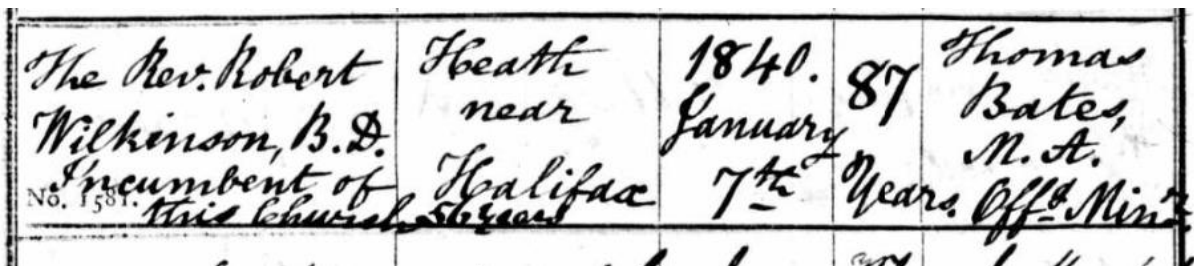 The Rev. Robert
Wilkinson, B.D.
Incumbent of
No. 1581.
this Church 56 years
Heath
near
Halifax
1840.
January
7th
87
Years.
Thomas
Bates,
M.A.
Offd. Minr.